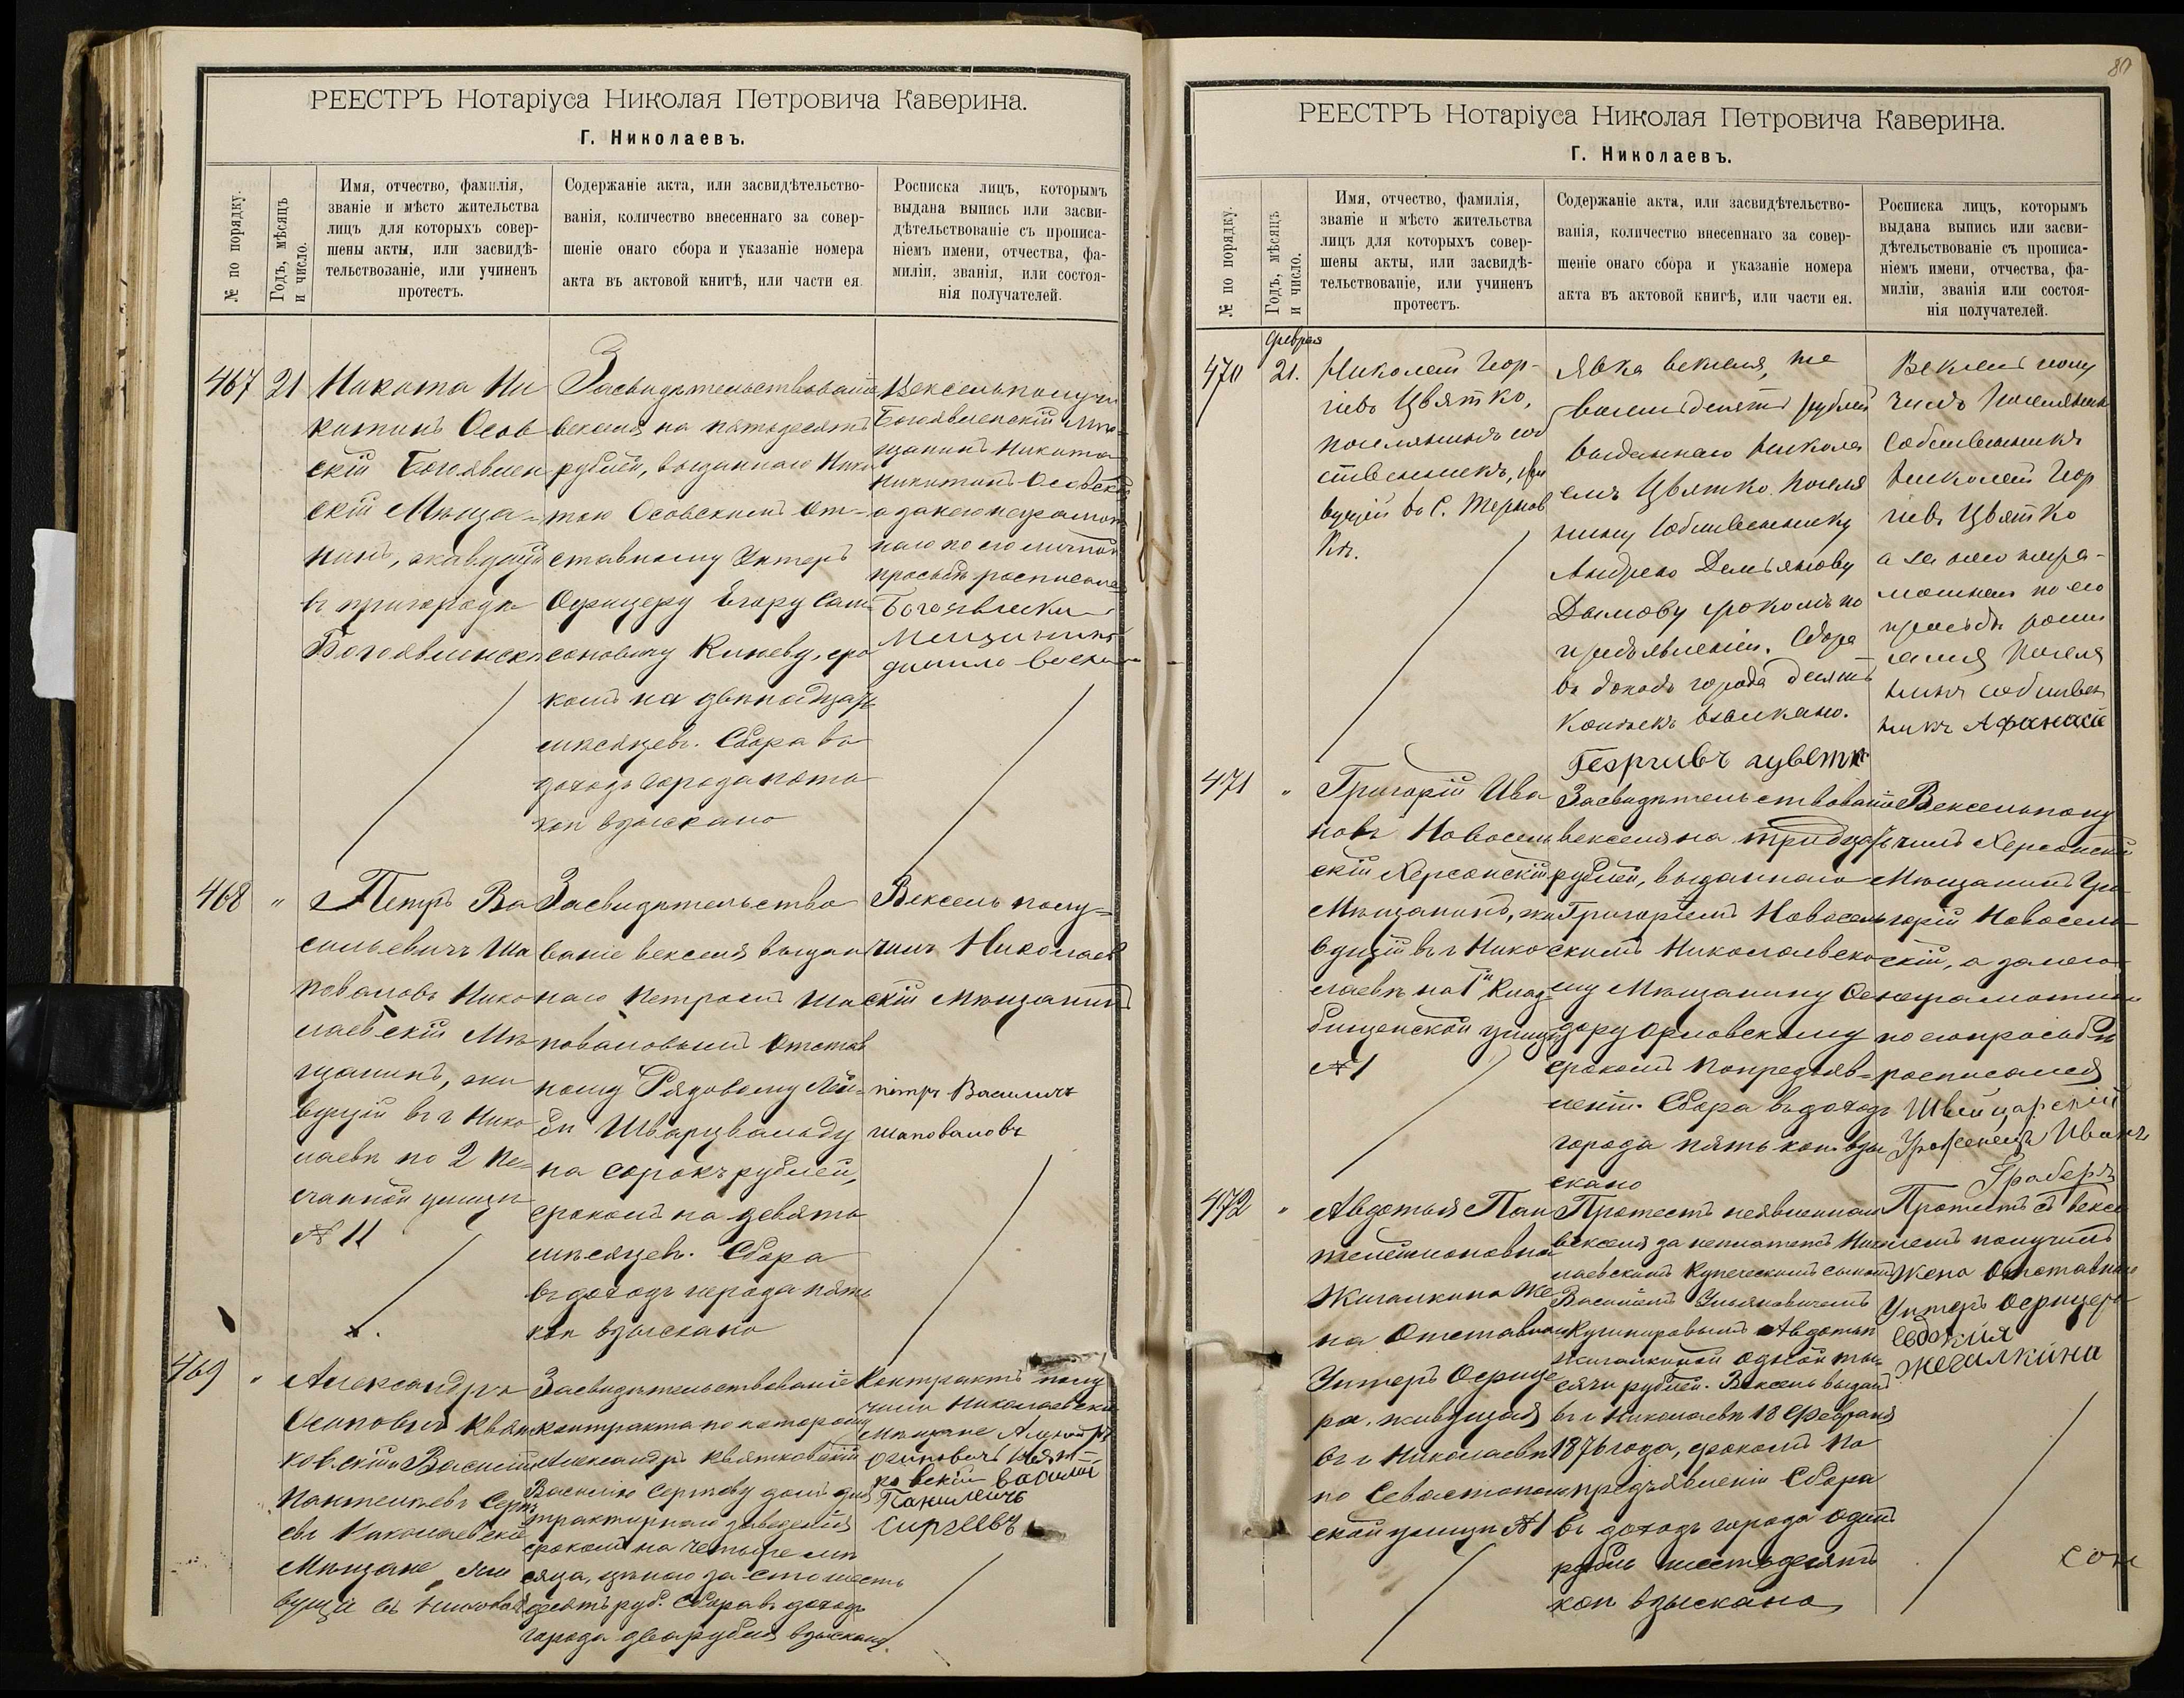 РЕЕСТРЪ Нотаріуса Николая Петровича Каверина.
Г. Николаевъ.
№ по порядку.
Годъ, мѣсяцъ
и число.
Имя, отчество, фамилія,
званіе и мѣсто жительства
лицъ для которыхъ совер-
шены акты, или засвидѣ-
тельствованіе, или учиненъ
протестъ.
Содержаніе акта, или засвидѣтельство-
ванія, количество внесеннаго за совер-
шеніе онаго сбора и указаніе номера
акта въ актовой книгѣ, или части ея.
Росписка лицъ, которымъ
выдана выпись или засви-
дѣтельствованіе съ прописа-
ніемъ имени, отчества, фа-
миліи, званія, или состоя-
нія получателей.
467
21
Никита Ни
китинъ Осов
скій Богоявлен
скій Мѣща-
нинъ, живущій
въ пригородѣ
Богоявленскѣ
Засвидѣтельствованіе
векселя на пятьдесятъ
рублей, выданнаго Ники
тою Осовскимъ от-
ставному Унтеръ
Офицеру Егору Сам
соновичу Киневу, сро
комъ на двѣнадцать
мѣсяцевъ. Сбора въ
доходъ города пять
коп взыскано
Вексель получи
Богоявленскій Мѣ-
щанинъ Никита
Никитинъ Осовскій
а за него неграмот
наго по его личной
просьбѣ росписался
Богоявленски
Мещининъ
данило
468
"
Петръ Ва
сильевичъ Ша
поваловъ Нико
лаевскій Мѣ-
щанинъ, жи
вущій въ г Нико
лаевѣ по 2 Пе-
счанной улицѣ
№ 11
Засвидѣтельство
ваніе векселя выдан
наго Петромъ Ша
поваловымъ Отстав
ному Рядовому Лей-
бѣ Шварцвальду
на сорокъ рублей,
срокомъ на девять
мѣсяцевъ. Сбора
въ доходъ города пять
коп взыскано
Вексель полу-
чилъ Николаев
скій Мѣщанинъ
петръ Василичъ
шаповаловъ
469
"
Александръ
Осиповъ Квят
ковскій и Василій
Пантелѣевъ Серг
евъ Николаевскіе
Мѣщане, жи
вущіе въ Николае
Засвидѣтельствованіе
контракта по которому
Александръ Квятковскій
Василію Сергѣеву домъ для
трактирнаго заведенія
срокомъ на четыре мѣ
сяца, цѣною за сто шесть
десятъ руб. Сбора въ доходъ
города два рубля взыскано.
Контрактъ полу
чили Николаевскіе
Мѣщане
Осиповичъ Квят-
ковскій василій
Сиргеевъ
80
РЕЕСТРЪ Нотаріуса Николая Петровича Каверина.
Г. Николаевъ.
№ по порядку.
Годъ, мѣсяцъ
и число.
Имя, отчество, фамилія,
званіе и мѣсто жительства
лицъ для которыхъ совер-
шены акты, или засвидѣ-
тельствованіе, или учиненъ
протестъ.
Содержаніе акта, или засвидѣтельство-
ванія, количество внесеннаго за совер-
шеніе онаго сбора и указаніе номера
акта въ актовой книгѣ, или части ея.
Росписка лицъ, которымъ
выдана выпись или засви-
дѣтельствованіе съ прописа-
ніемъ имени, отчества, фа-
миліи, званія или состоя-
нія получателей.
470
Февраля
21.
Николай Геор-
гіевъ Цвятко,
поселянинъ соб
ственникъ, жи
вущій въ С. Тернов
кѣ.
Явка векселя, на
восемьдесятъ рублей
выданнаго Никола
емъ Цвятко поселя
нину Собственнику
Андрею Демьянову
Дымову срокомъ по
предъявленіи. Сбора
въ доходъ города десять
копѣекъ взыскано.
Вексель полу
чилъ Поселянинъ
Собственникъ
Николай Геор
гіевъ Цвятко
а за него негра-
мотнаго по его
просьбѣ роспи
сался Поселя
нинъ собствен
никъ Афанасіе
Георгивъ
471
"
Григорій Ива
новъ Новосель
скій Херсонскій
Мѣщанинъ, жи
вущій въ г Нико
лаевѣ на 1й Клад
бищенской улицѣ
№ 1
Засвидѣтельствованіе
векселя на тридцать
рублей, выданнаго
Григоріемъ Новосель
скимъ Николаевско
му Мѣщанину Ѳе
дору Орловскому
срокомъ по предъяв-
леніи. Сбора въ доходъ
города пять коп взы
скано
Вексель полу
чилъ Херсонскій
Мѣщанинъ Гри-
горій Новосель
скій, а за него
неграмотнаго
по его просьбѣ
росписался
Швейцарскій
Уроженецъ Иванъ
Граберъ
472
"
Авдотья Пан
телеймоновна
Жигалкина Же
на Отставнаго
Унтеръ Офице
ра, живущая
въ г Николаевѣ
по Севастополь
ской улицѣ № 1
Протестъ неявленнаго
векселя за неплатежъ Нико
лаевскимъ Купеческимъ сыномъ
Василіемъ Ульяновичемъ
Кушнировымъ Авдотьи
Жигалкиной одной ты-
сячи рублей. Вексель выданъ
въ г Николаевѣ 18 Февраля
1876 года, срокомъ по
предъявленіи Сбора
въ доходъ города одинъ
рубль шестьдесятъ
коп взыскано
Протестъ съ вексе
лемъ получилъ
Жена Отставнаго
Унтеръ Офицера
Евдокия
Жегалкина